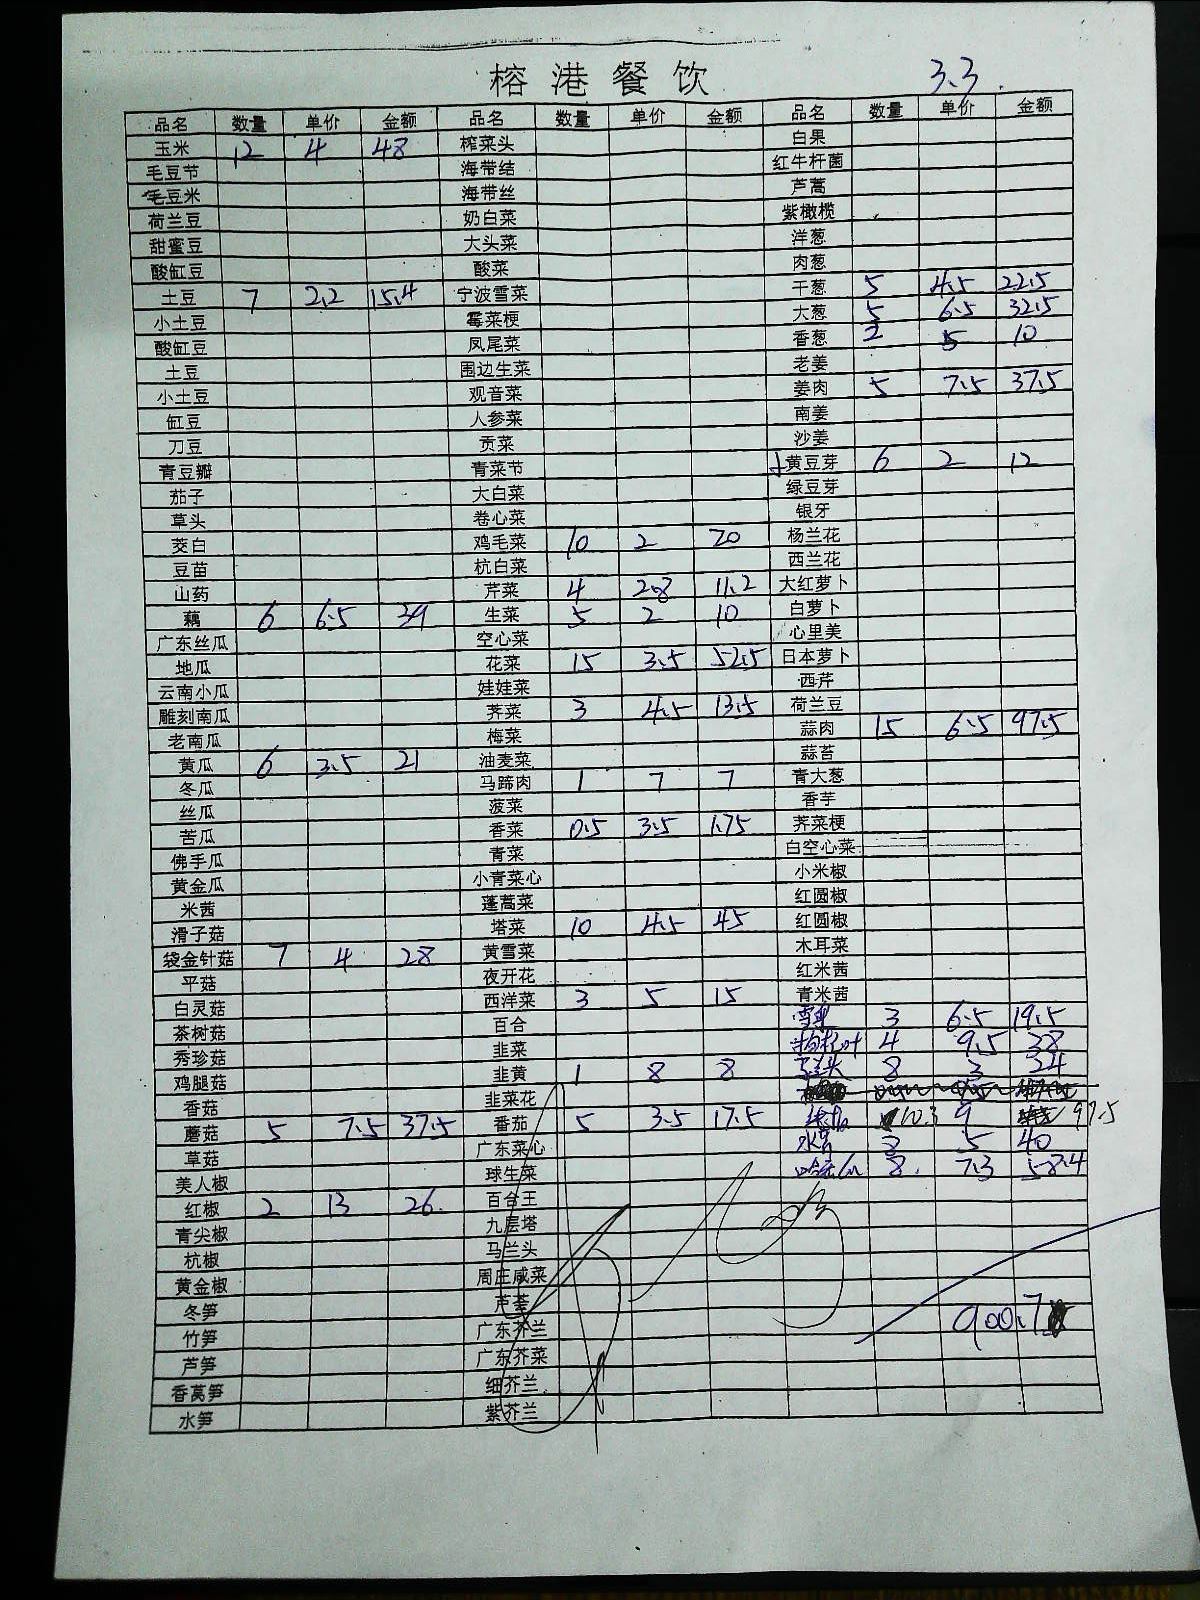 榕港餐饮 3.3
品名 数量 单价 金额 品名 数量 单价 金额 品名 数量 单价 金额
玉米 12 4 48 榨菜头 白果
毛豆节 海带结 红牛杆菌
毛豆米 海带丝 芦蒿
荷兰豆 奶白菜 紫橄榄
甜蜜豆 大头菜 洋葱
酸缸豆 酸菜 肉葱
土豆 7 2.2 15.4 宁波雪菜 干葱 5 4.5 22.5
小土豆 霉菜梗 大葱 5 6.5 32.5
酸缸豆 凤尾菜 香葱 2 5 10
土豆 围边生菜 老姜
小土豆 观音菜 姜肉 5 7.5 37.5
缸豆 人参菜 南姜
刀豆 贡菜 沙姜
青豆瓣 青菜节 黄豆芽 6 2 12
茄子 大白菜 绿豆芽
草头 卷心菜 银牙
茭白 鸡毛菜 10 2 20 杨兰花
豆苗 杭白菜 西兰花
山药 芹菜 4 2.8 11.2 大红萝卜
藕 6 6.5 39 生菜 5 2 10 白萝卜
广东丝瓜 空心菜 心里美
地瓜 花菜 15 3.5 52.5 日本萝卜
云南小瓜 娃娃菜 西芹
雕刻南瓜 荠菜 3 4.5 13.5 荷兰豆
老南瓜 梅菜 蒜肉 15 6.5 97.5
黄瓜 6 3.5 21 油麦菜 蒜苔
冬瓜 马蹄肉 1 7 7 青大葱
丝瓜 菠菜 香芋
苦瓜 香菜 0.5 3.5 1.75 荠菜梗
佛手瓜 青菜 白空心菜
黄金瓜 小青菜心 小米椒
米茜 蓬蒿菜 红圆椒
滑子菇 塔菜 10 4.5 45 红圆椒
袋金针菇 7 4 28 黄雪菜 木耳菜
平菇 夜开花 红米茜
白灵菇 西洋菜 3 5 15 青米茜
茶树菇 百合 3 6.5 19.5
秀珍菇 韭菜 4 9.5 38
鸡腿菇 韭黄 1 8 8 8 3 24
香菇 韭菜花
蘑菇 5 7.5 37.5 番茄 5 3.5 17.5 10.3 9 97.5
草菇 广东菜心 8 5 40
美人椒 球生菜 8 7.3 58.4
红椒 2 13 26 百合王
青尖椒 九层塔
杭椒 马兰头
黄金椒 周庄咸菜
冬笋 芦荟
竹笋 广东芥兰 900.7
芦笋 广东芥菜
香莴笋 细芥兰
水笋 紫芥兰